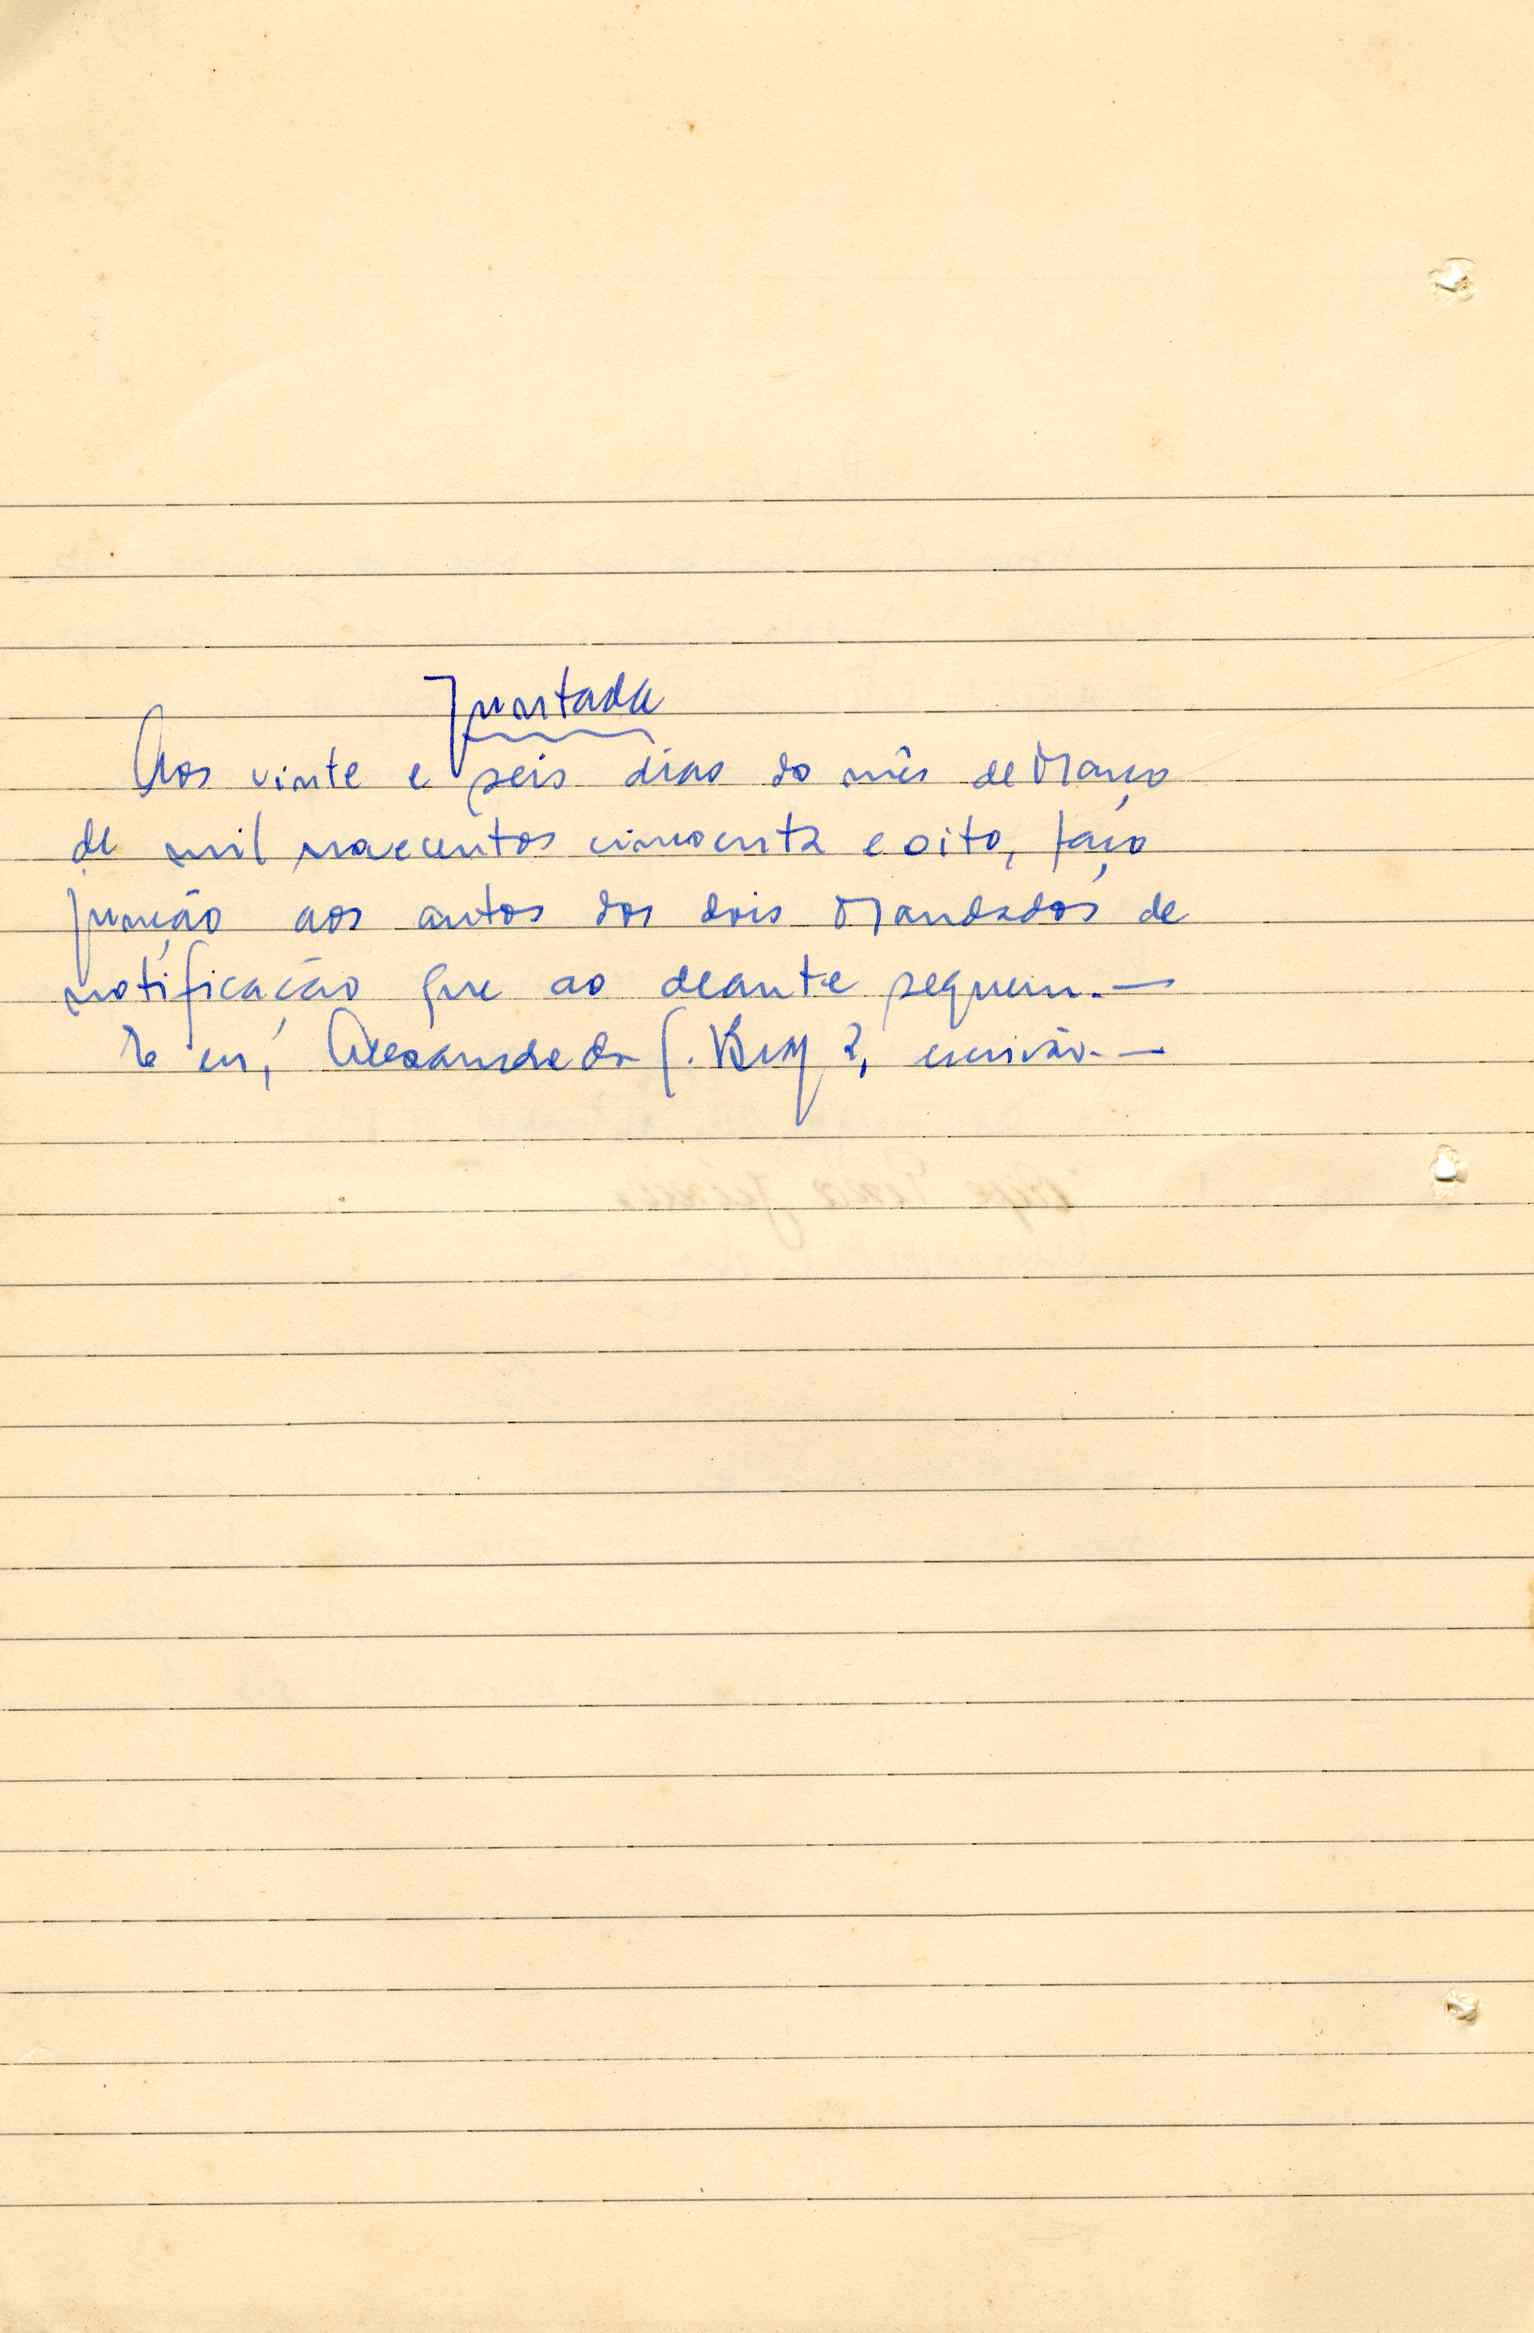 Juntada
Aos vinte e seis dias do mês de Março
de mil novecentos cincoenta e oito, faço
junção aos autos dos dois Mandados de
notificação que ao deante seguem.—
E eu, Alexandre da C. escrivão.—